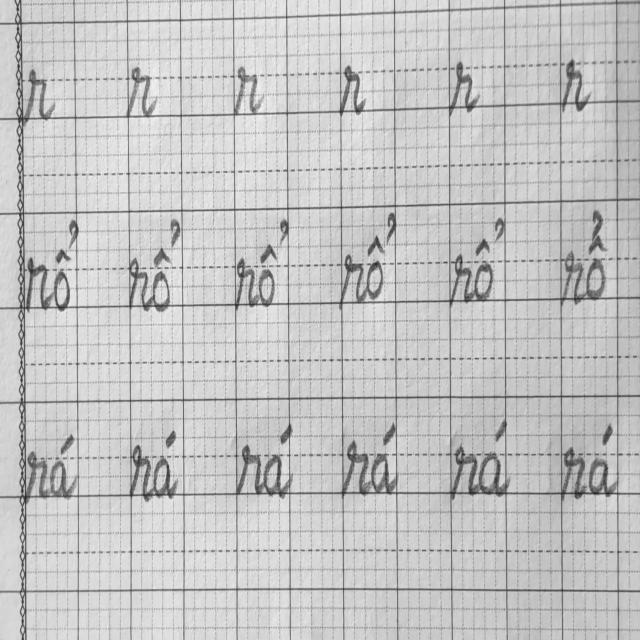 r r r r r r
rổ rổ rổ rổ rổ rổ
rá rá rá rá rá rá